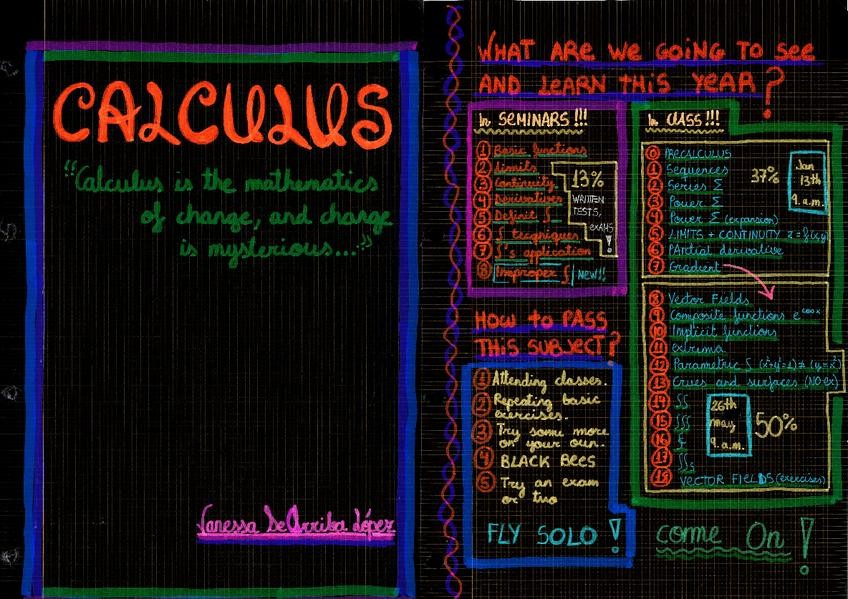 CALCULUS
"Calculus is the mathematics
of change, and change
is mysterious..."
Vanessa De Arriba López
WHAT ARE WE GOING TO SEE
AND LEARN THIS YEAR?
In SEMINARS!!!
1 Basic functions
2 Limits
3 Continuity
4 Derivatives
5 Definit ∫
6 ∫ tecniques
7 ∫'s application
8 Improper ∫ NEW!!
13%
WRITTEN
TESTS,
EXAMS!
HOW to PASS
THIS SUBJECT?
1 Attending classes.
2 Repeating basic
exercises.
3 Try some more
on your own.
4 BLACK BEES
5 Try an exam
or two
FLY SOLO!
In CLASS!!!
0 PRECALCULUS
1 Sequences
2 Series Σ
3 Power Σ
4 Power Σ (expansion)
5 LIMITS + CONTINUITY z=f(x,y)
6 PArtial derivative
7 Gradient
37%
Jan
13th
9. a.m.
8 Vector Fields
9 Composite functions
10 Implicit functions
11 extrema
12 Parametric ∫
13 Crues and surfaces (NO ex)
14 ∫∫
15 ∫∫∫
16
17 ∫∫s
18 VECTOR FIELDS (exercises)
26th
may
9. a.m.
50%
come On!